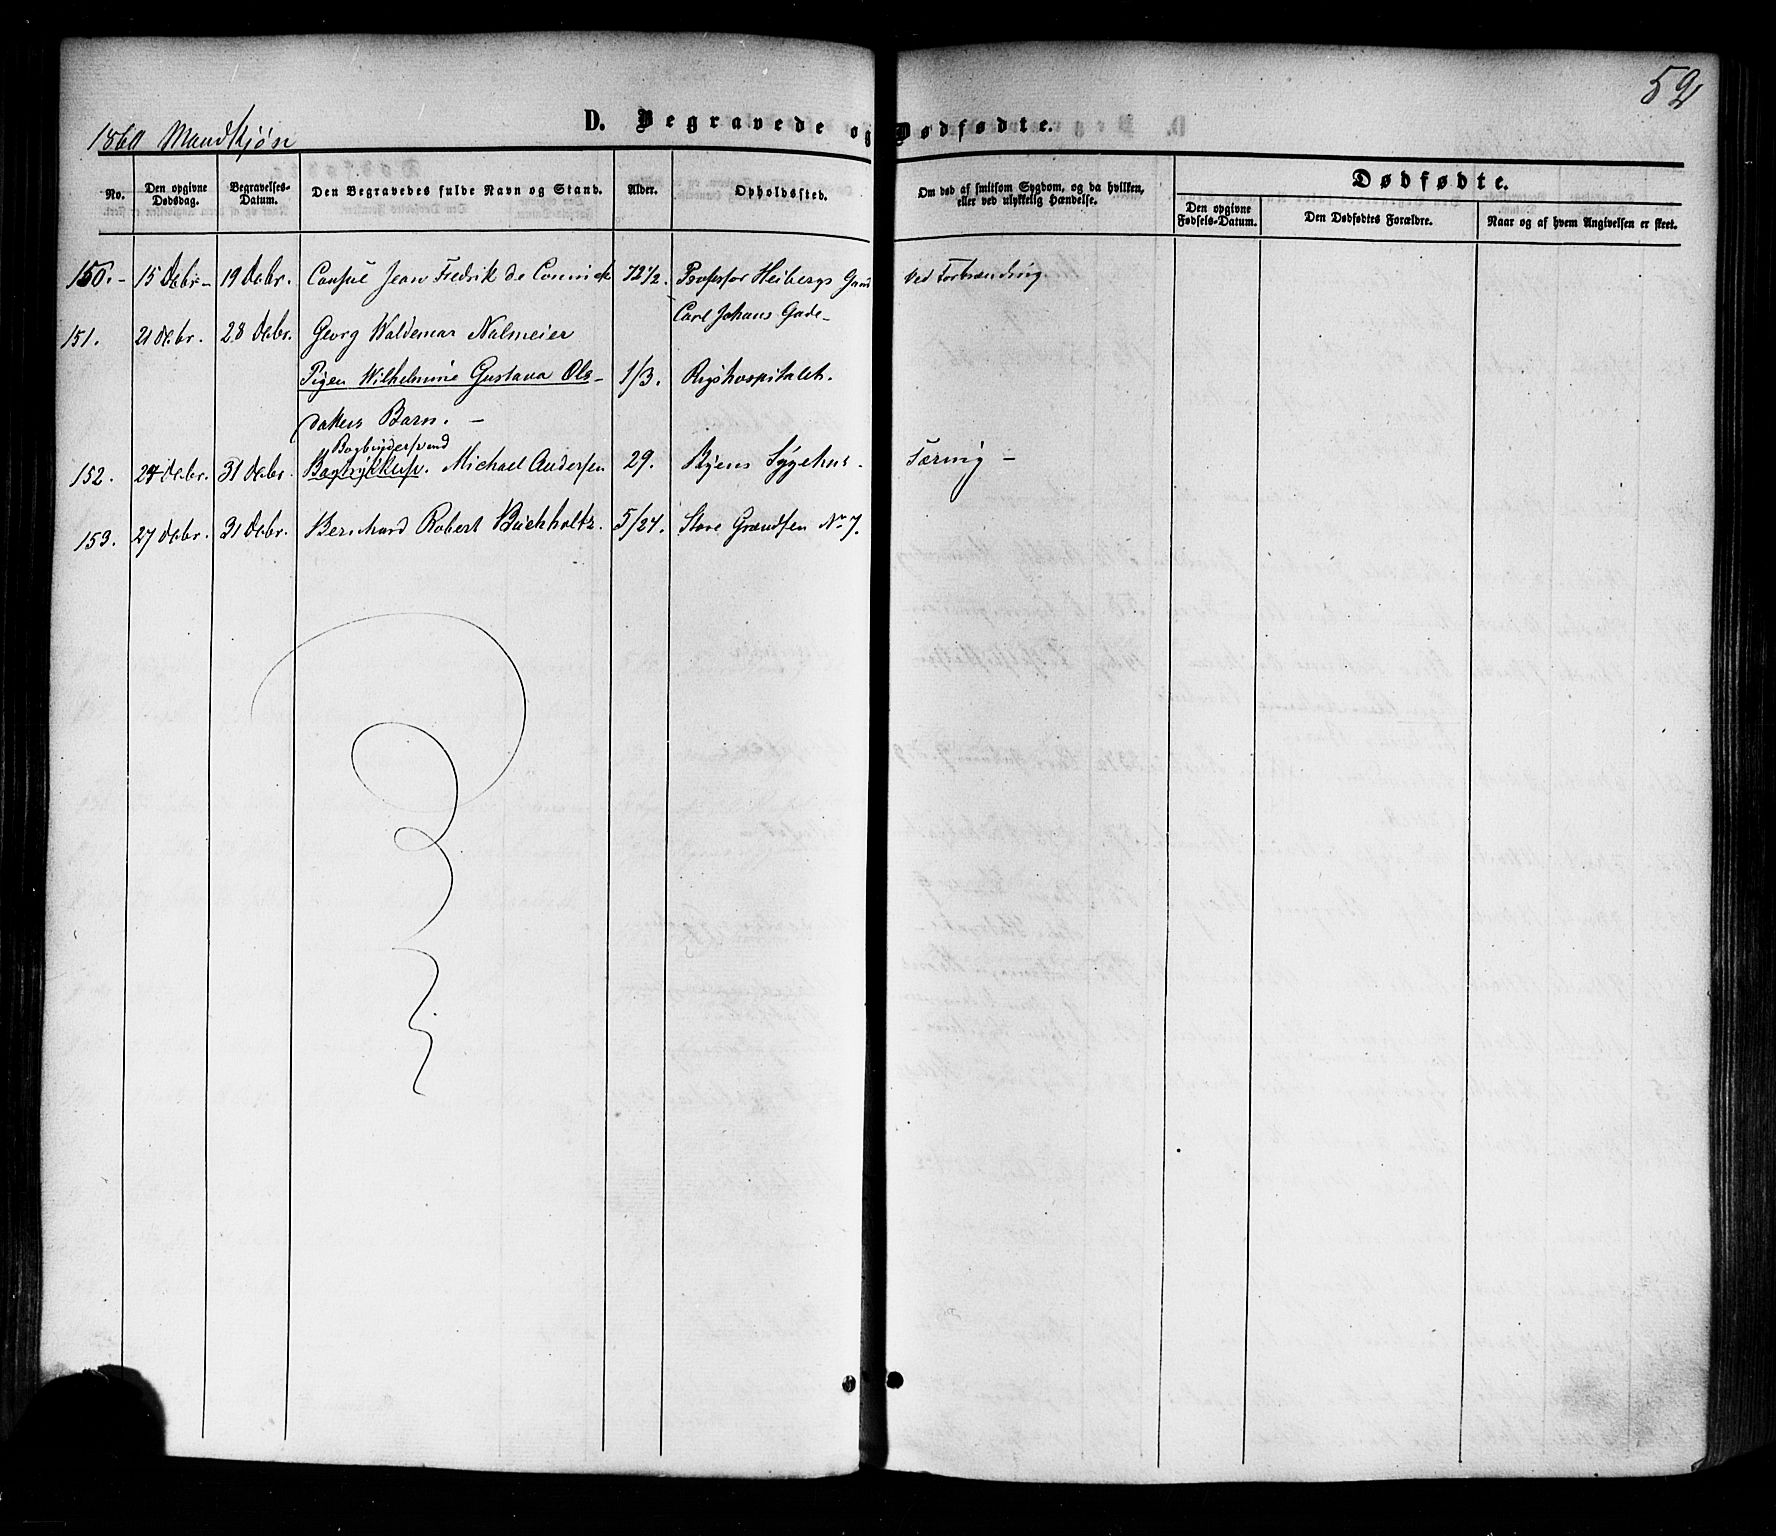 52
1860 Mandkjøn
D. Begravede og Dødfødte.
No.
Den opgivne Dødsdag.
Begravelses-Datum.
Den Begravedes fulde Navn og Stand.
Alder.
Opholdssted.
Om død af smitsom Sygdom, og da hvilken, eller ved ulykkelig Hændelse.
Dødfødte.
Den opgivne Fødsels-Datum.
Den Dødfødtes Forældre.
Naar og af hvem Angivelsen er skeet.
150. - 15 Debr - 19 Debr. Consul Jean Fredrik de Coninck 72 1/2. Professor Heibergs Gaard Ved Forbrænding.
Carl Johans Gade -
151. 21 Debr. 28 Debr. Georg Waldemar Nalmeier
Pigen Wilhelmine Gustava Ols- 1/3. Rigshospitalet.
datters Barn. -
Bogbindersvend
152. 24 Debr. 31 Debr. Michael Andersen 29. Byens Sygehus. Tæring -
153. 27 Debr. 31 Debr. Bernhard Robert Buchholtz. 5/24. Store Grændsen No 7.